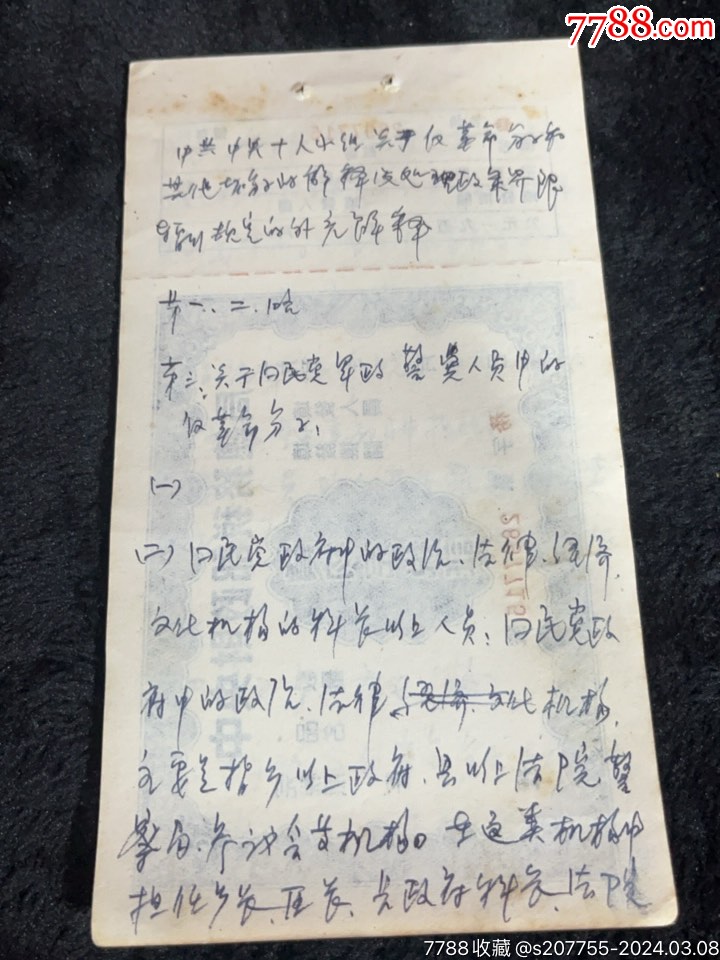 7788.com
中共中央十人小组关于反革命分子和
其他坏分子的解释及处理政策界限
暂行规定的补充解释
第一、二、略
第三、关于国民党军政警宪人员中的
反革命分子:
(一)
(二)国民党政府中的政治、法律、经济、
文化机构的科长以上人员:国民党政
府中的政治、法律、经济、文化机构,
主要是指乡以上政府、县以上法院警
察局、参议会等机构。在这类机构中
担任乡长、区长、县政府科长、法院
7788收藏@s207755-2024.03.08